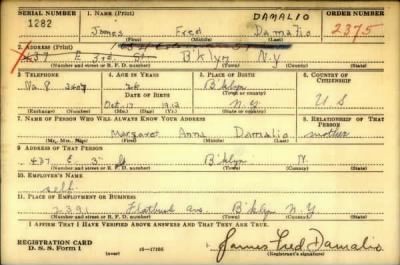 SERIAL NUMBER 1. NAME (Print) DAMALIO ORDER NUMBER
1282 James Fred Damalio 2375
(First) (Middle) (Last)
2. ADDRESS (Print)
437 E 3rd St B'klyn N.Y
(Number and street or R. F. D. number) (Town) (County) (State)
3. TELEPHONE 4. AGE IN YEARS 5. PLACE OF BIRTH 6. COUNTRY OF CITIZENSHIP
B'klyn
(Town or county)
DATE OF BIRTH
Oct. N.Y. U S
(Exchange) (Number) (Mo.) (Day) (Yr.) (State or country)
7. NAME OF PERSON WHO WILL ALWAYS KNOW YOUR ADDRESS 8. RELATIONSHIP OF THAT PERSON
Margaret Anna Damalio mother
(Mr., Mrs., Miss) (First) (Middle) (Last)
9. ADDRESS OF THAT PERSON
437 E. 3rd St B'klyn N.
(Number and street or R. F. D. number) (Town) (County) (State)
10. EMPLOYER'S NAME
self
11. PLACE OF EMPLOYMENT OR BUSINESS
2391 Flatbush ave. B'klyn N.Y
(Number and street or R. F. D. number) (Town) (County) (State)
I AFFIRM THAT I HAVE VERIFIED ABOVE ANSWERS AND THAT THEY ARE TRUE.
REGISTRATION CARD
D. S. S. Form 1 (over) 16-17105 James Fred Damalio
(Registrant's signature)